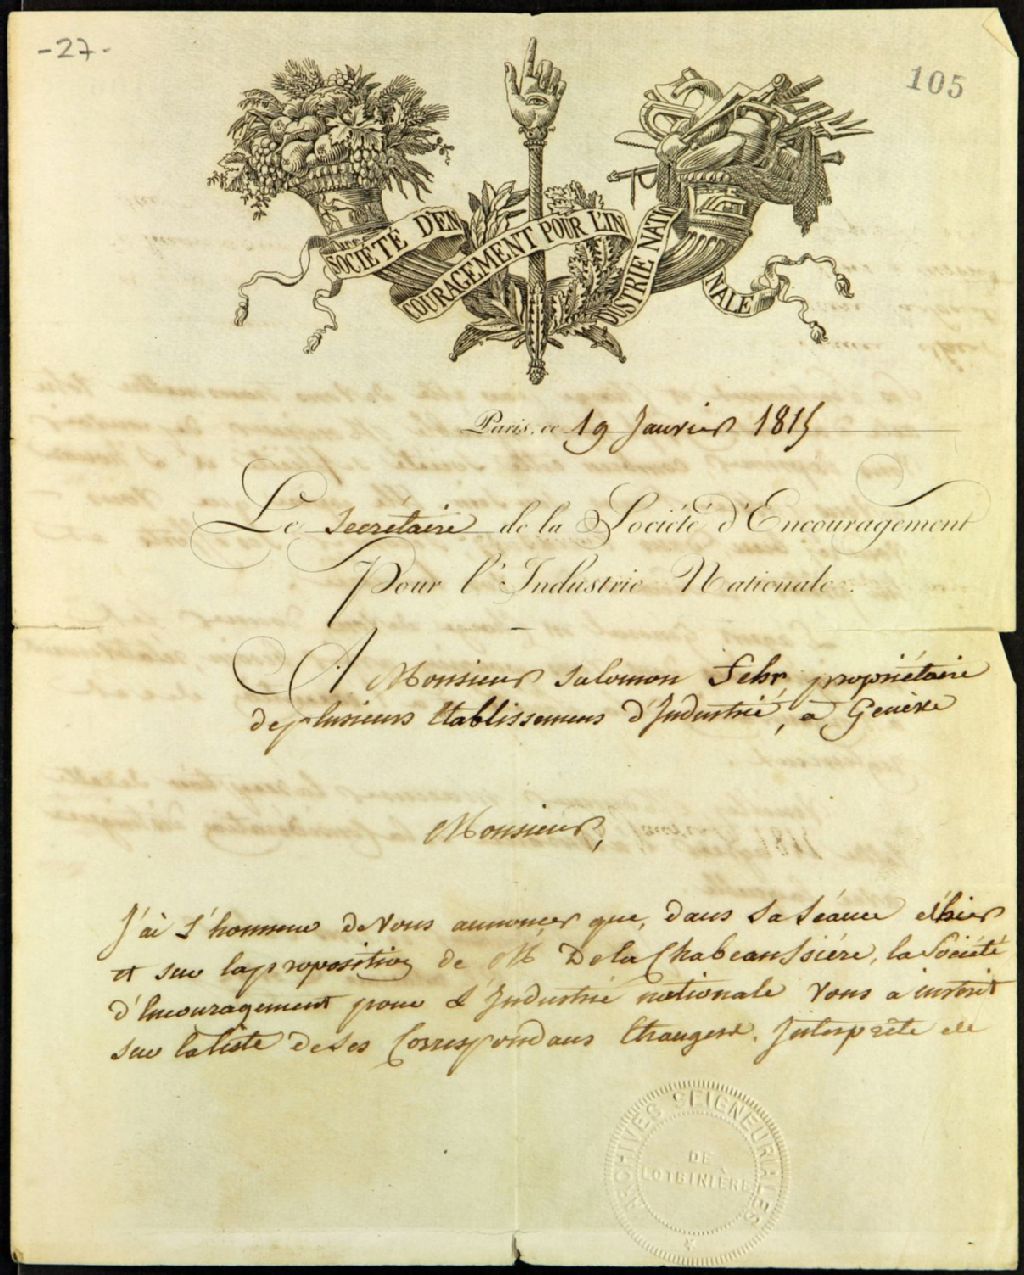 -27-
105
SOCIÉTÉ D'ENCOURAGEMENT POUR L'INDUSTRIE NATIONALE
Paris, ce 19 Janvier 1815
Le Secrétaire de la Société d'Encouragement
Pour l'Industrie Nationale.
A Monsieur Salomon Fehr, propriétaire
de plusieurs Etablissemens d'Industrie, à Genève
Monsieur,
J'ai l'honneur de Vous annoncer que, dans sa séance d'hier
et sur la proposition de M. De la Chabeaussière, la Société
d'Encouragement pour l'Industrie nationale Vous a inscrit
sur la liste de ses Correspondans Etrangers. Interprète de
ARCHIVES SEIGNEURIALES
DE
LOTBINIÈRE